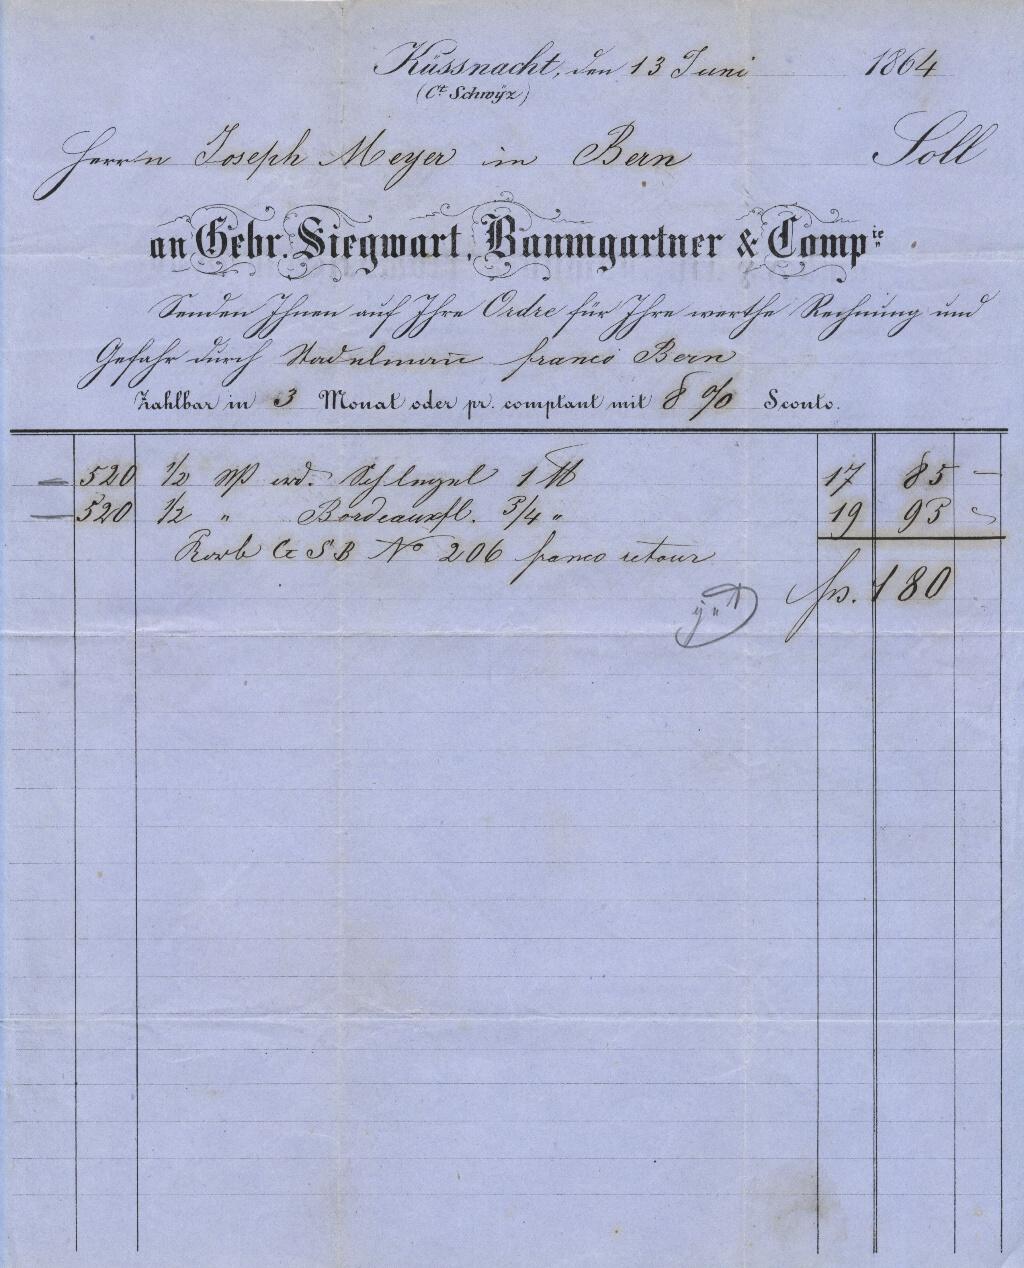 Küssnacht, den 13 Juni 1864
(Ct. Schwÿz)
Herrn Joseph Meyer in Bern Soll
an Gebr. Siegwart, Baumgartner & Compie.
Senden Ihnen auf Ihre Ordre für Ihre werthe Rechnung und
Gefahr durch Stadelmann franco Bern
Zahlbar in 3 Monat oder pr. comptant mit 8 % Sconto.
520 1/2 ord. Schlegel 1 17 85 —
520 1/2 " Bordeauxfl. 3/4 " 19 95
Korb G S B No 206 franco retour
frs. 180